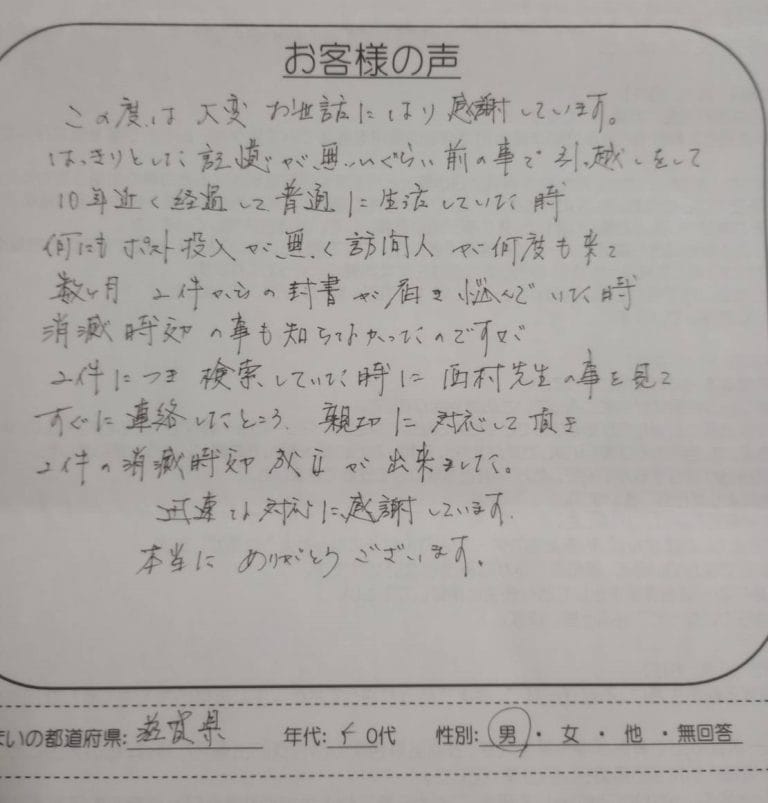 お客様の声
この度は大変お世話になり感謝しています。
はっきりとした記憶が無いぐらい前の事で引っ越しをして
10年近く経過して普通に生活していた時
何にもポスト投入が無く訪問人が何度も来て
数ヶ月 2件からの封書が届き悩んでいた時
消滅時効の事も知らなかったのですが
2件につき検索していた時に西村先生の事を見て
すぐに連絡したところ、親切に対応して頂き
2件の消滅時効成立が出来ました。
迅速な対応に感謝しています。
本当にありがとうございます。
まいの都道府県: 滋賀県 年代: 0代 性別: 男・女・他・無回答